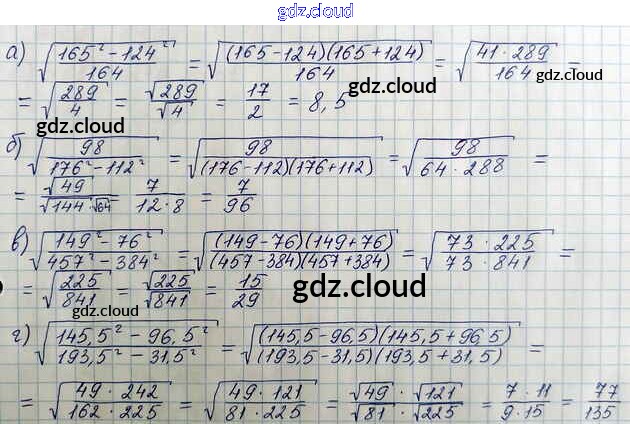 gdz.cloud
а) √((165² − 124²)/164) = √((165 − 124)(165 + 124)/164) = √((41 · 289)/164) =
gdz.cloud
gdz.cloud
= √(289/4) = √289/√4 = 17/2 = 8,5
gdz.cloud
б) √(98/(176² − 112²)) = √(98/((176 − 112)(176 + 112))) = √(98/(64 · 288)) =
= √49/(√144 · √64) = 7/(12 · 8) = 7/96
в) √((149² − 76²)/(457² − 384²)) = √((149 − 76)(149 + 76)/((457 − 384)(457 + 384))) = √((73 · 225)/(73 · 841)) =
= √(225/841) = √225/√841 = 15/29
gdz.cloud
г) √((145,5² − 96,5²)/(193,5² − 31,5²)) = √((145,5 − 96,5)(145,5 + 96 5)/((193,5 − 31,5)(193,5 + 31,5))) =
= √((49 · 242)/(162 · 225)) = √((49 · 121)/(81 · 225)) = (√49 · √121)/(√81 · √225) = (7 · 11)/(9 · 15) = 77/135